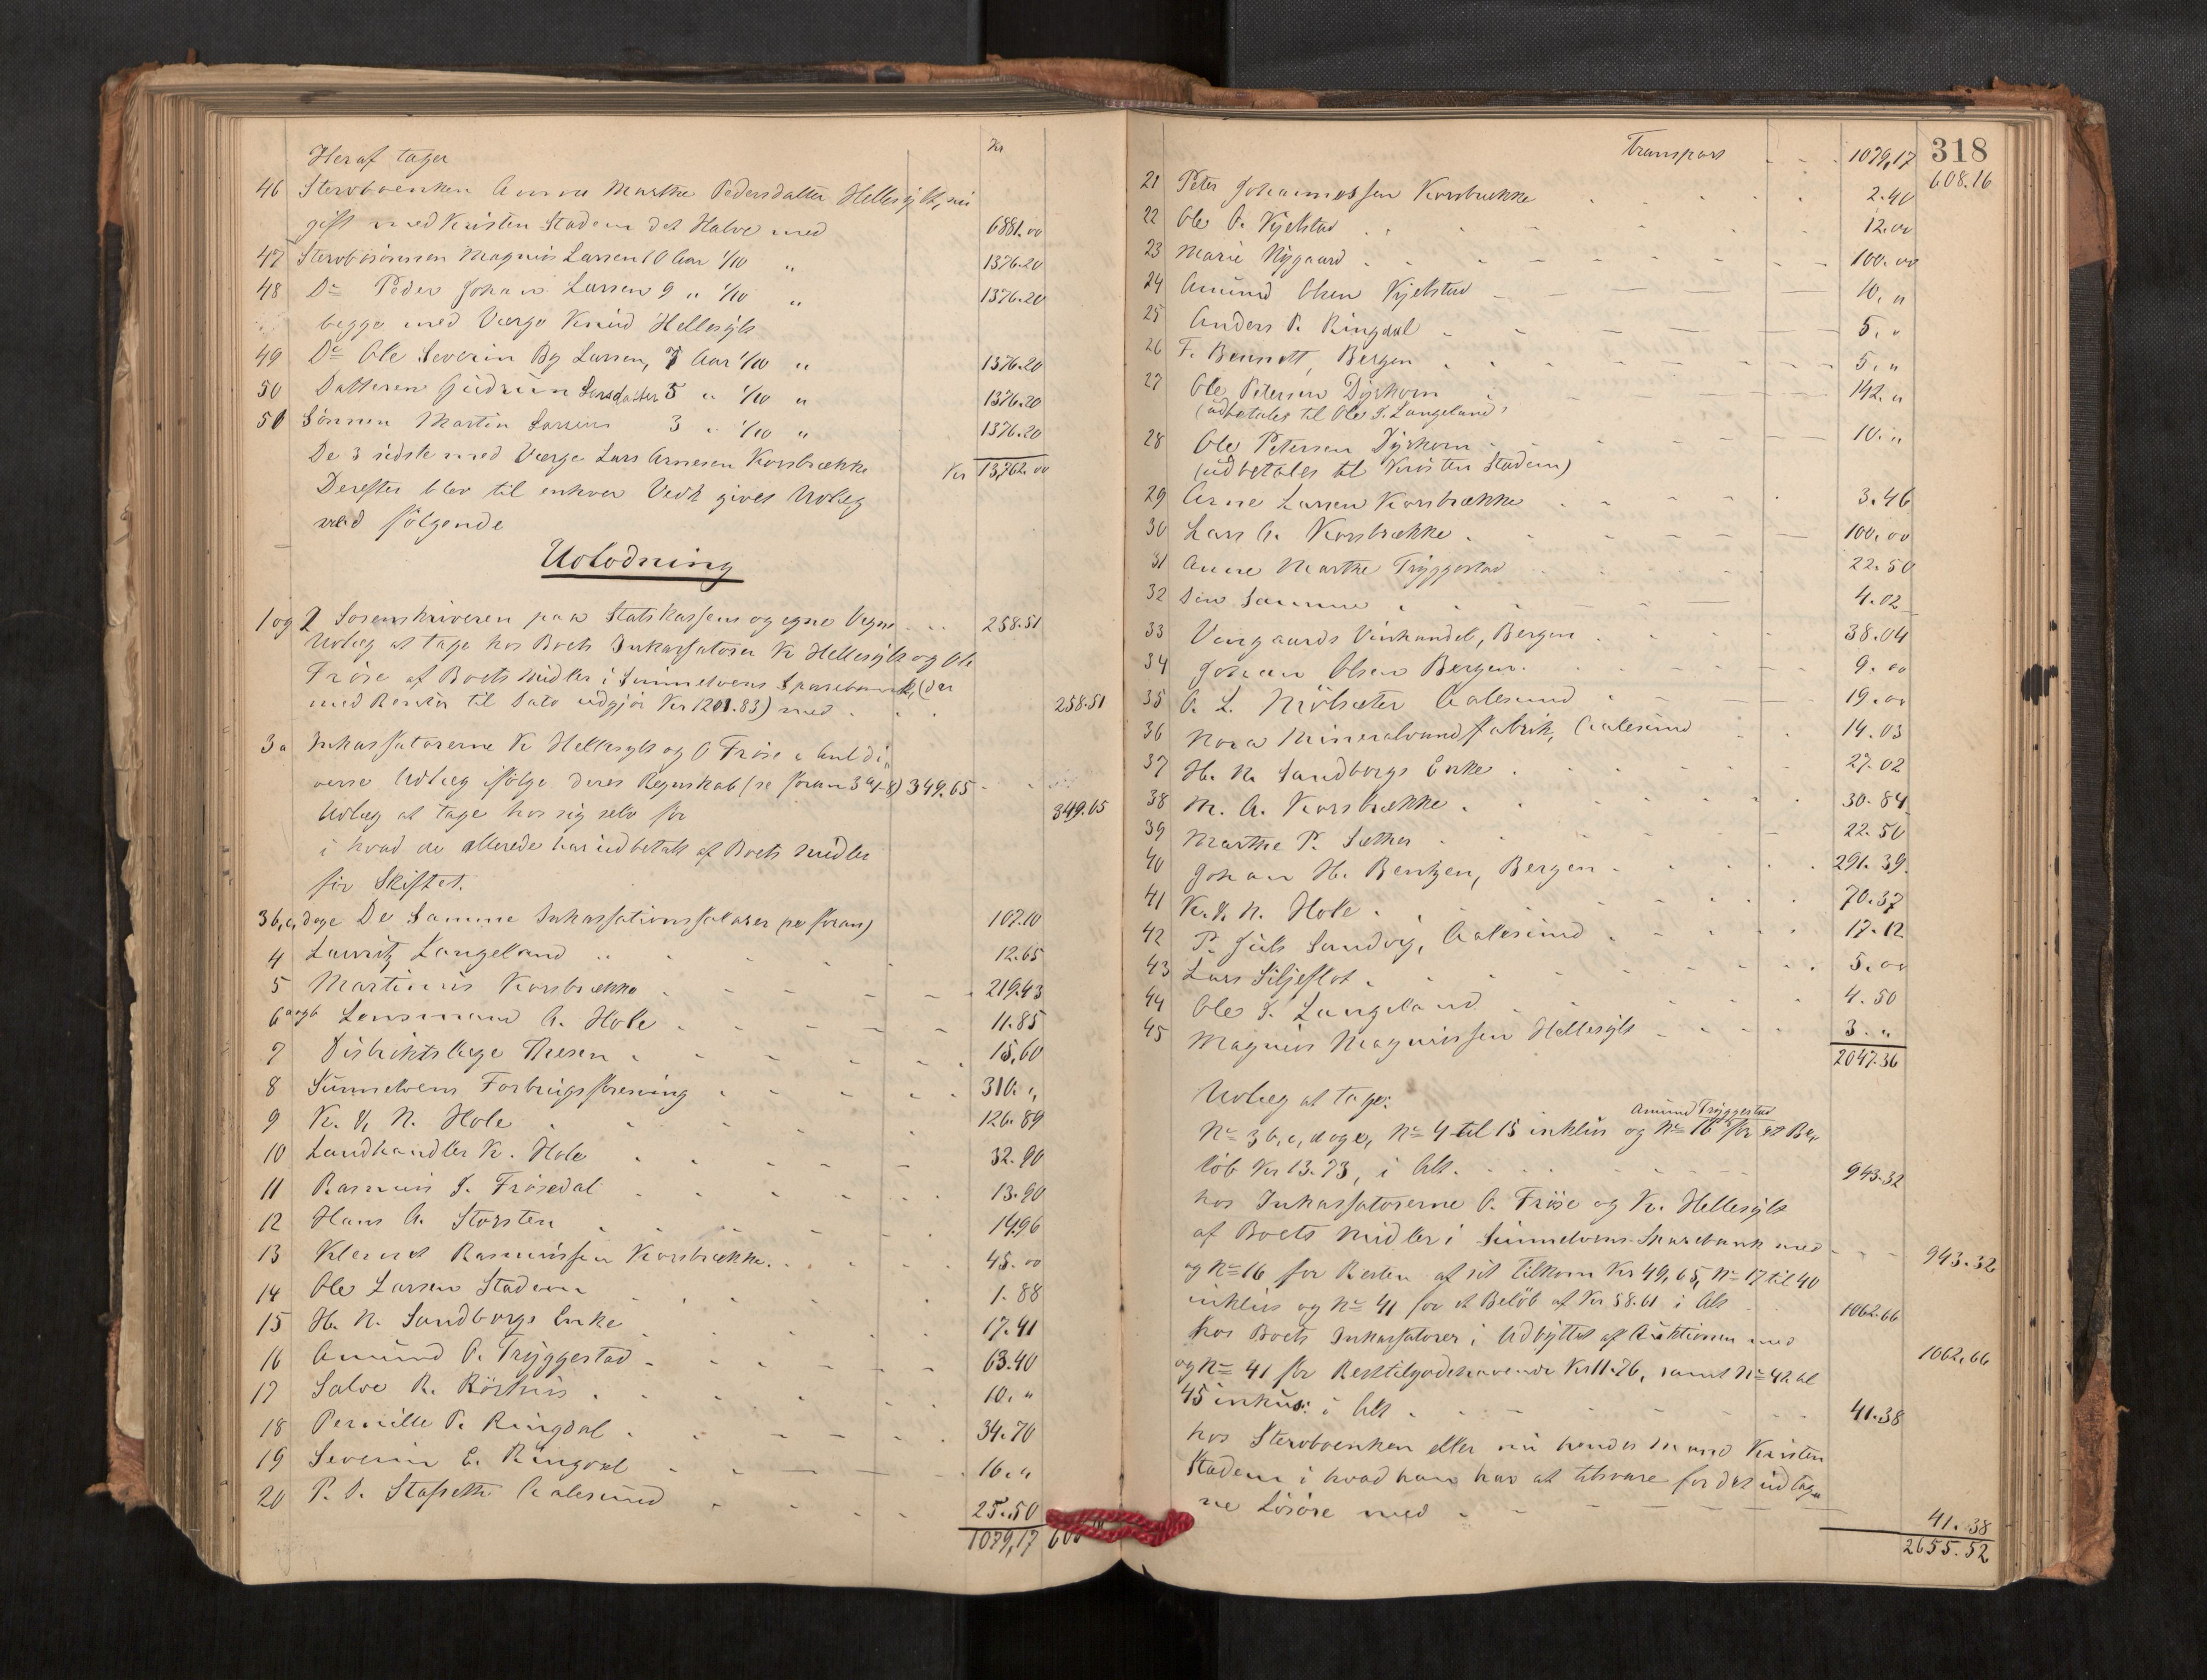 Heraf tager
Kr
46 Stervboenken Anna Marthe Pedersdatter Hellesylt, nu
gift med Kristen Stadem det Halve med 6881.00
47 Stervbosönnen Magnus Larsen 10 Aar 1/10 " 1376.20
48 Do Peder Johan Larsen 9 " 1/10 " 1376.20
begge med Værge Knud Hellesylt
49 Do Ole Severin By Larsen, 7 Aar 1/10 " 1376.20
50 Datteren Gudrun Larsdatter 5 " 1/10 " 1376.20
51 Sönnen Martin Larsens 3 " 1/10 " 1376.20
De 3 sidste med Værge Lars Arnesen Korsbrække Kr 13,762.00
Derefter blev til enhver Vedk givet Udlæg
ved fölgende
Udlodning
1 og 2 Sorenskriveren paa Statskassens og egne Vegne 258.51
Udlæg at tage hos Boets Inkassatorer K Hellesylt og Ole
Fröse af Boets Midler i Sunnelvens Sparebank, (der
med Renter til Dato udgjör Kr 1201.83) med 258.51
3a Inkassatorerne K Hellesylt og O Fröse i Anl di,,
verse Udlæg ifölge deres Regnskab (se foran 3 a 1-8) 349.65
Udlæg at tage hos sig selv for 349.65
i hvad de allerede har udbetalt af Boets Midler
for Skiftet.
3b,c,d og e De Samme Inkassationssalærer (se foran) 107.10
4 Lauritz Langeland " 12.65
5 Martinus Korsbrække 219.43
6 a og b Lensmand A. Hole 11.85
7 Distriktslæge Thesen 15,60
8 Sunnelvens Forbrugsforening 310. "
9 K. K. N. Hole 126.89
10 Landhandler K. Hole 32.90
11 Rasmus I. Frösedal 13.90
12 Hans A. Storsten 14.96
13 Klemet Rasmussen Korsbrække. 45.00
14 Ole Larsen Stadem 1.88
15 H. N. Sandborgs Enke 17.41
16 Amund O. Tryggestad 63.40
17 Salve R. Rörhus 10. "
18 Pernille P. Ringdal 34.70
19 Severin E. Ringdal 16. "
20 P. D. Stafseth Aalesund 25.50
1079,17 60
318
Transport 1079,17 608.16
21 Peter Johannessen Korsbrække 2.40
22 Ole O. Kjelstad 12.00
23 Marie Nygaard 100.00
24 Amund Olsen Kjelstad 10. "
25 Anders P. Ringdal 5. "
26 F. Bennett, Bergen 5. "
27 Ole Petersen Dyrkorn 142. "
(udbetales til Ole I. Langeland)
28 Ole Petersen Dyrkorn 10. "
(udbetales til Kristen Stadem)
29 Arne Larsen Korsbrække 3.46
30 Lars A. Korsbrække 100.00
31 Anne Marthe Tryggestad 22.50
32 Den Samme 4.02
33 Vingaards Vinhandel, Bergen 38.04
34 Johan Olsen Bergen. 9.00
35 O. L. Mölsæter Aalesund 19.00
36 Nora Mineralvandfabrik, Aalesund 14.03
37 H. N. Sandborgs Enke 27.02
38 M. A. Korsbrække 30.84
39 Marthe P. Sæther 22.50
40 Johan H. Bentzen, Bergen 291.39.
41 K. K. N. Hole 70.37
42 P. Juls Sandvig, Aalesund 17.12
43 Lars Siljeslot 5.00
44 Ole I. Langeland 4.50
45 Magnus Magnussen Hellesylt 3. "
2047.36
Udlæg at tage:
Amund Tryggestad
No 3 b, c, d og e, No 4 til 15 inklus og No 16 for et Be,,
löb Kr 13.73, i Alt. 943.32
hos Inkassatorerne O. Fröse og K. Hellesylt
af Boets Midler i Sunnelvens Sparebank med 943.32
og No 16 for Resten af sit Tilkom Kr 49,65, No 17 til 40
inklus og No 41 for et Belöb af Kr 58.61 i Alt 1062.66
hos Boets Inkassatorer i Udbyttet af Auktionen med 1062,66
og No 41 for Resttilgodehavende Kr 11.76, samt No 42 til
45 inklus: i Alt 41.38
hos Stervboenken eller nu hendes Mand Kristen
Stadem i hvad han har at tilsvare for det udtag,,
ne Lösöre med 41.38
2655.52